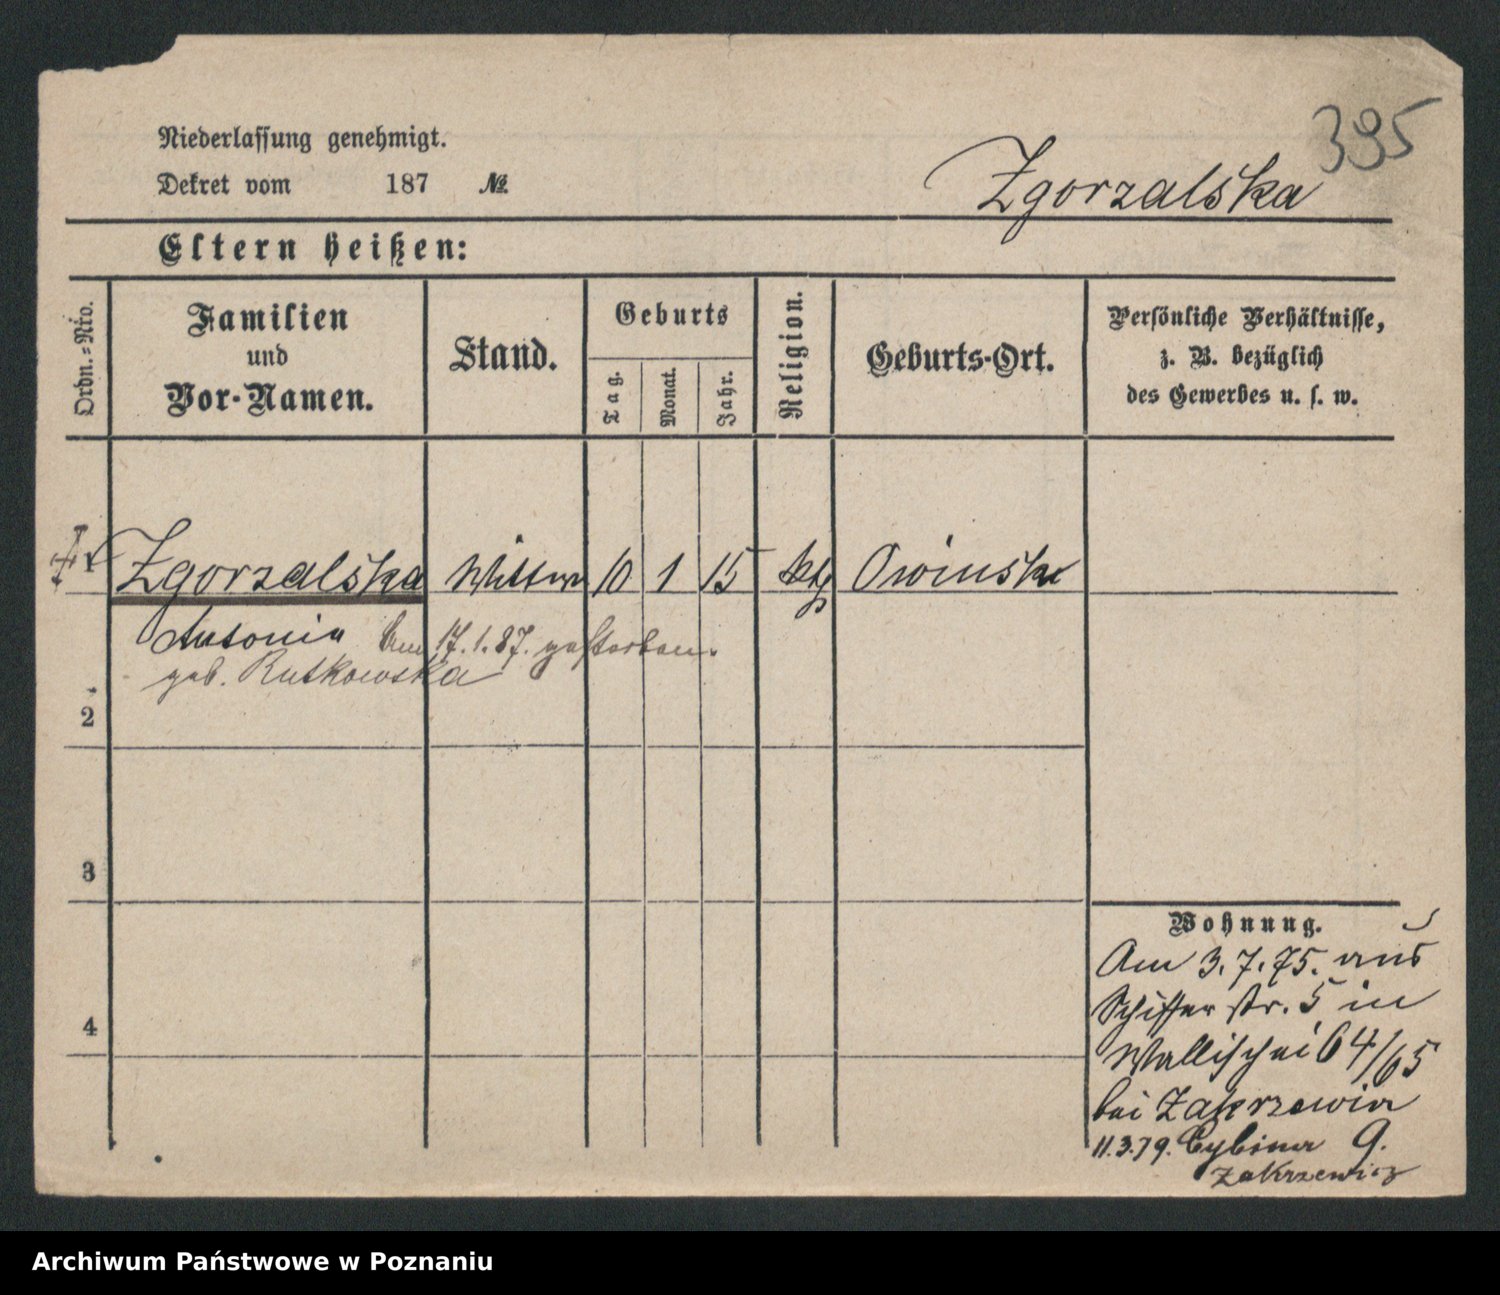 395
Niederlassung genehmigt.
Dekret vom 187 №
Zgorzalska
Eltern heißen:
Ordn.=Nro.
Familien und Vor-Namen.
Stand.
Geburts
Tag.
Monat.
Jahr.
Religion.
Geburts-Ort.
Persönliche Verhältnisse,
z. B. bezüglich
des Gewerbes u. s. w.
1 Zgorzalska Wittwe 10 1 15 kth Owinsk
Antonia am 17.1.87. gestorben.
geb. Rutkowska
2
3
4
Wohnung.
Am 3.7.75. aus
Schifferstr. 5 in
Wallischei 64/65
bei Zakrzewicz
11.3.79. Cybina 9.
Zakrzewicz
Archiwum Państwowe w Poznaniu